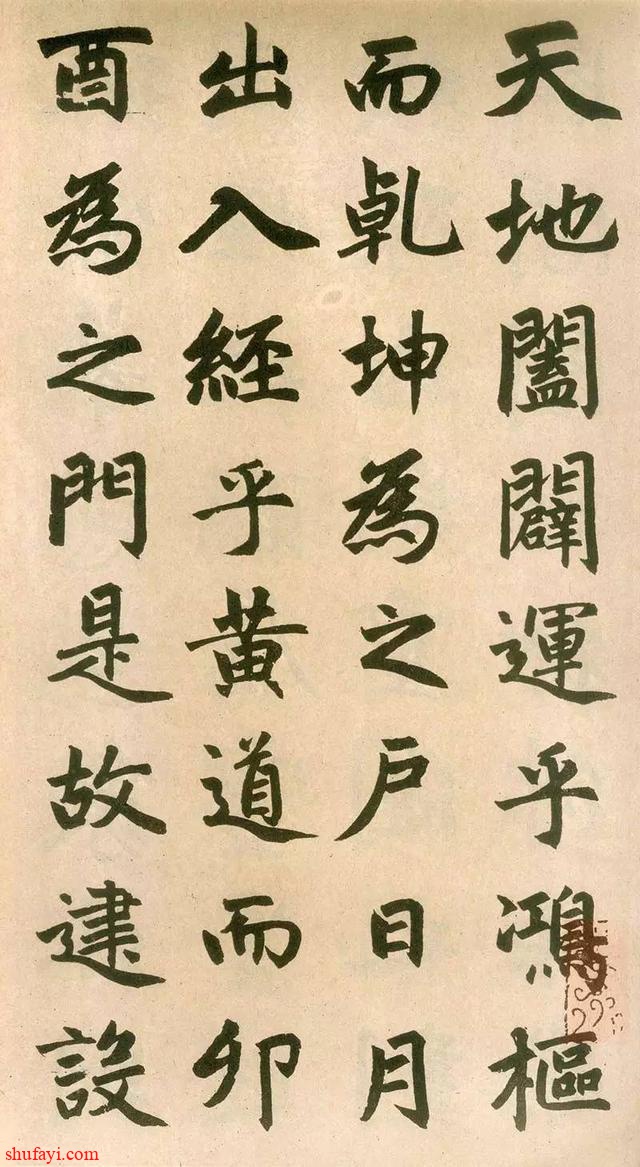 天地闔闢運乎鴻樞
而乹坤為之户日月
出入經乎黄道而卯
酉為之門是故建設
shufayi.com